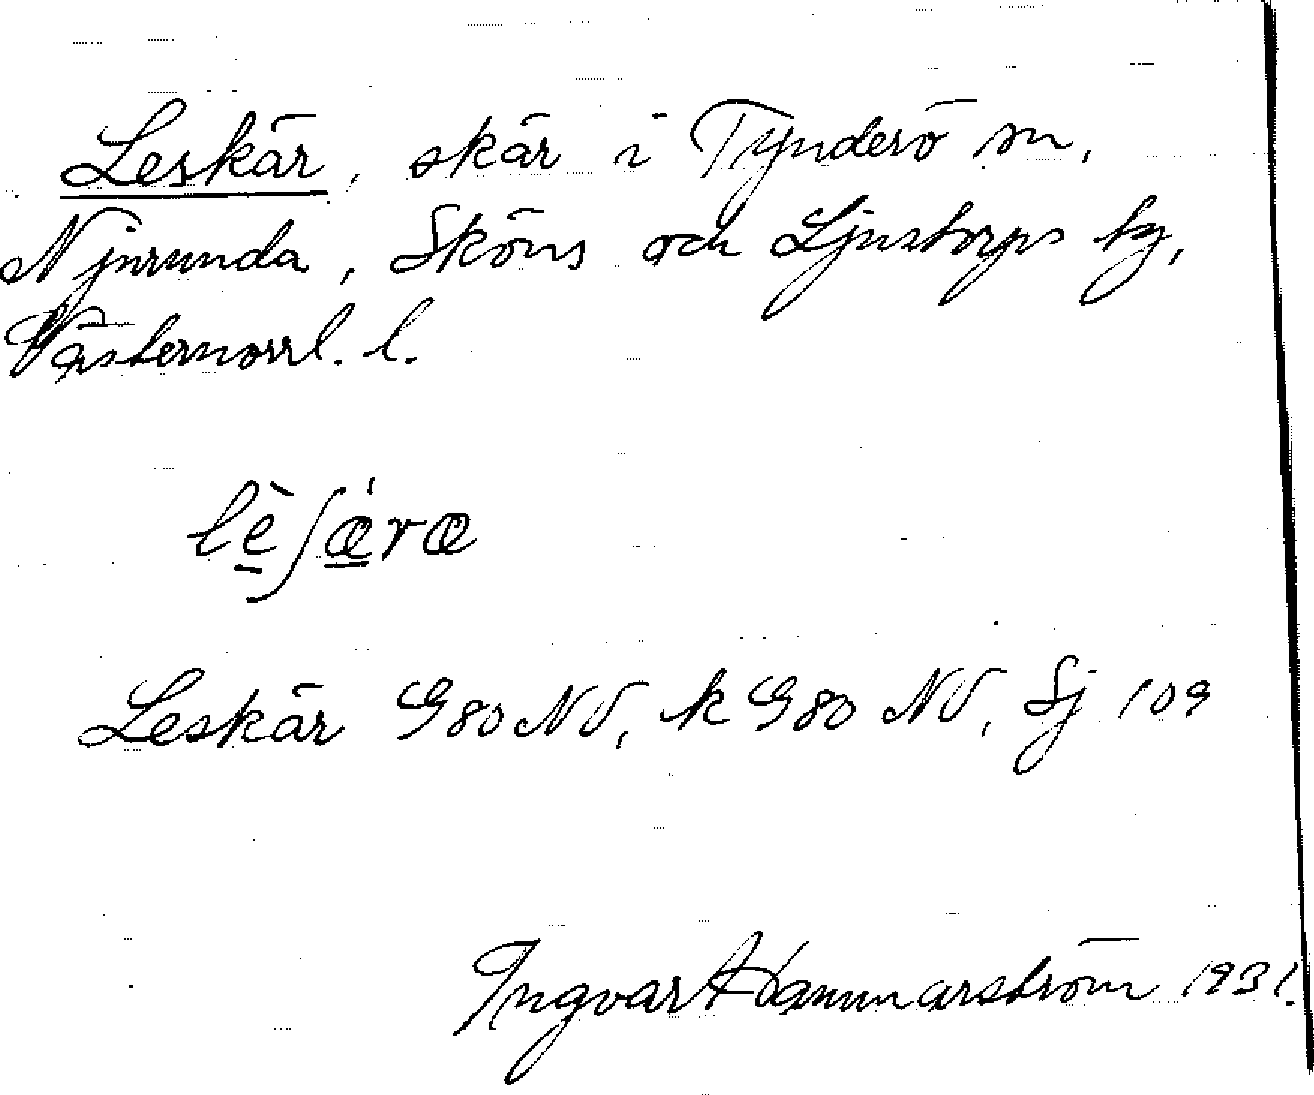 Leskär, skär i Tynderö sn,
Njurunda, Sköns och Ljustorps tg,
Västernorrl. l.
lè̱ʃǽ̱ræ
Leskär G80NV, k G80 NV, Sj 109
Ingvar Hammarström 1931.